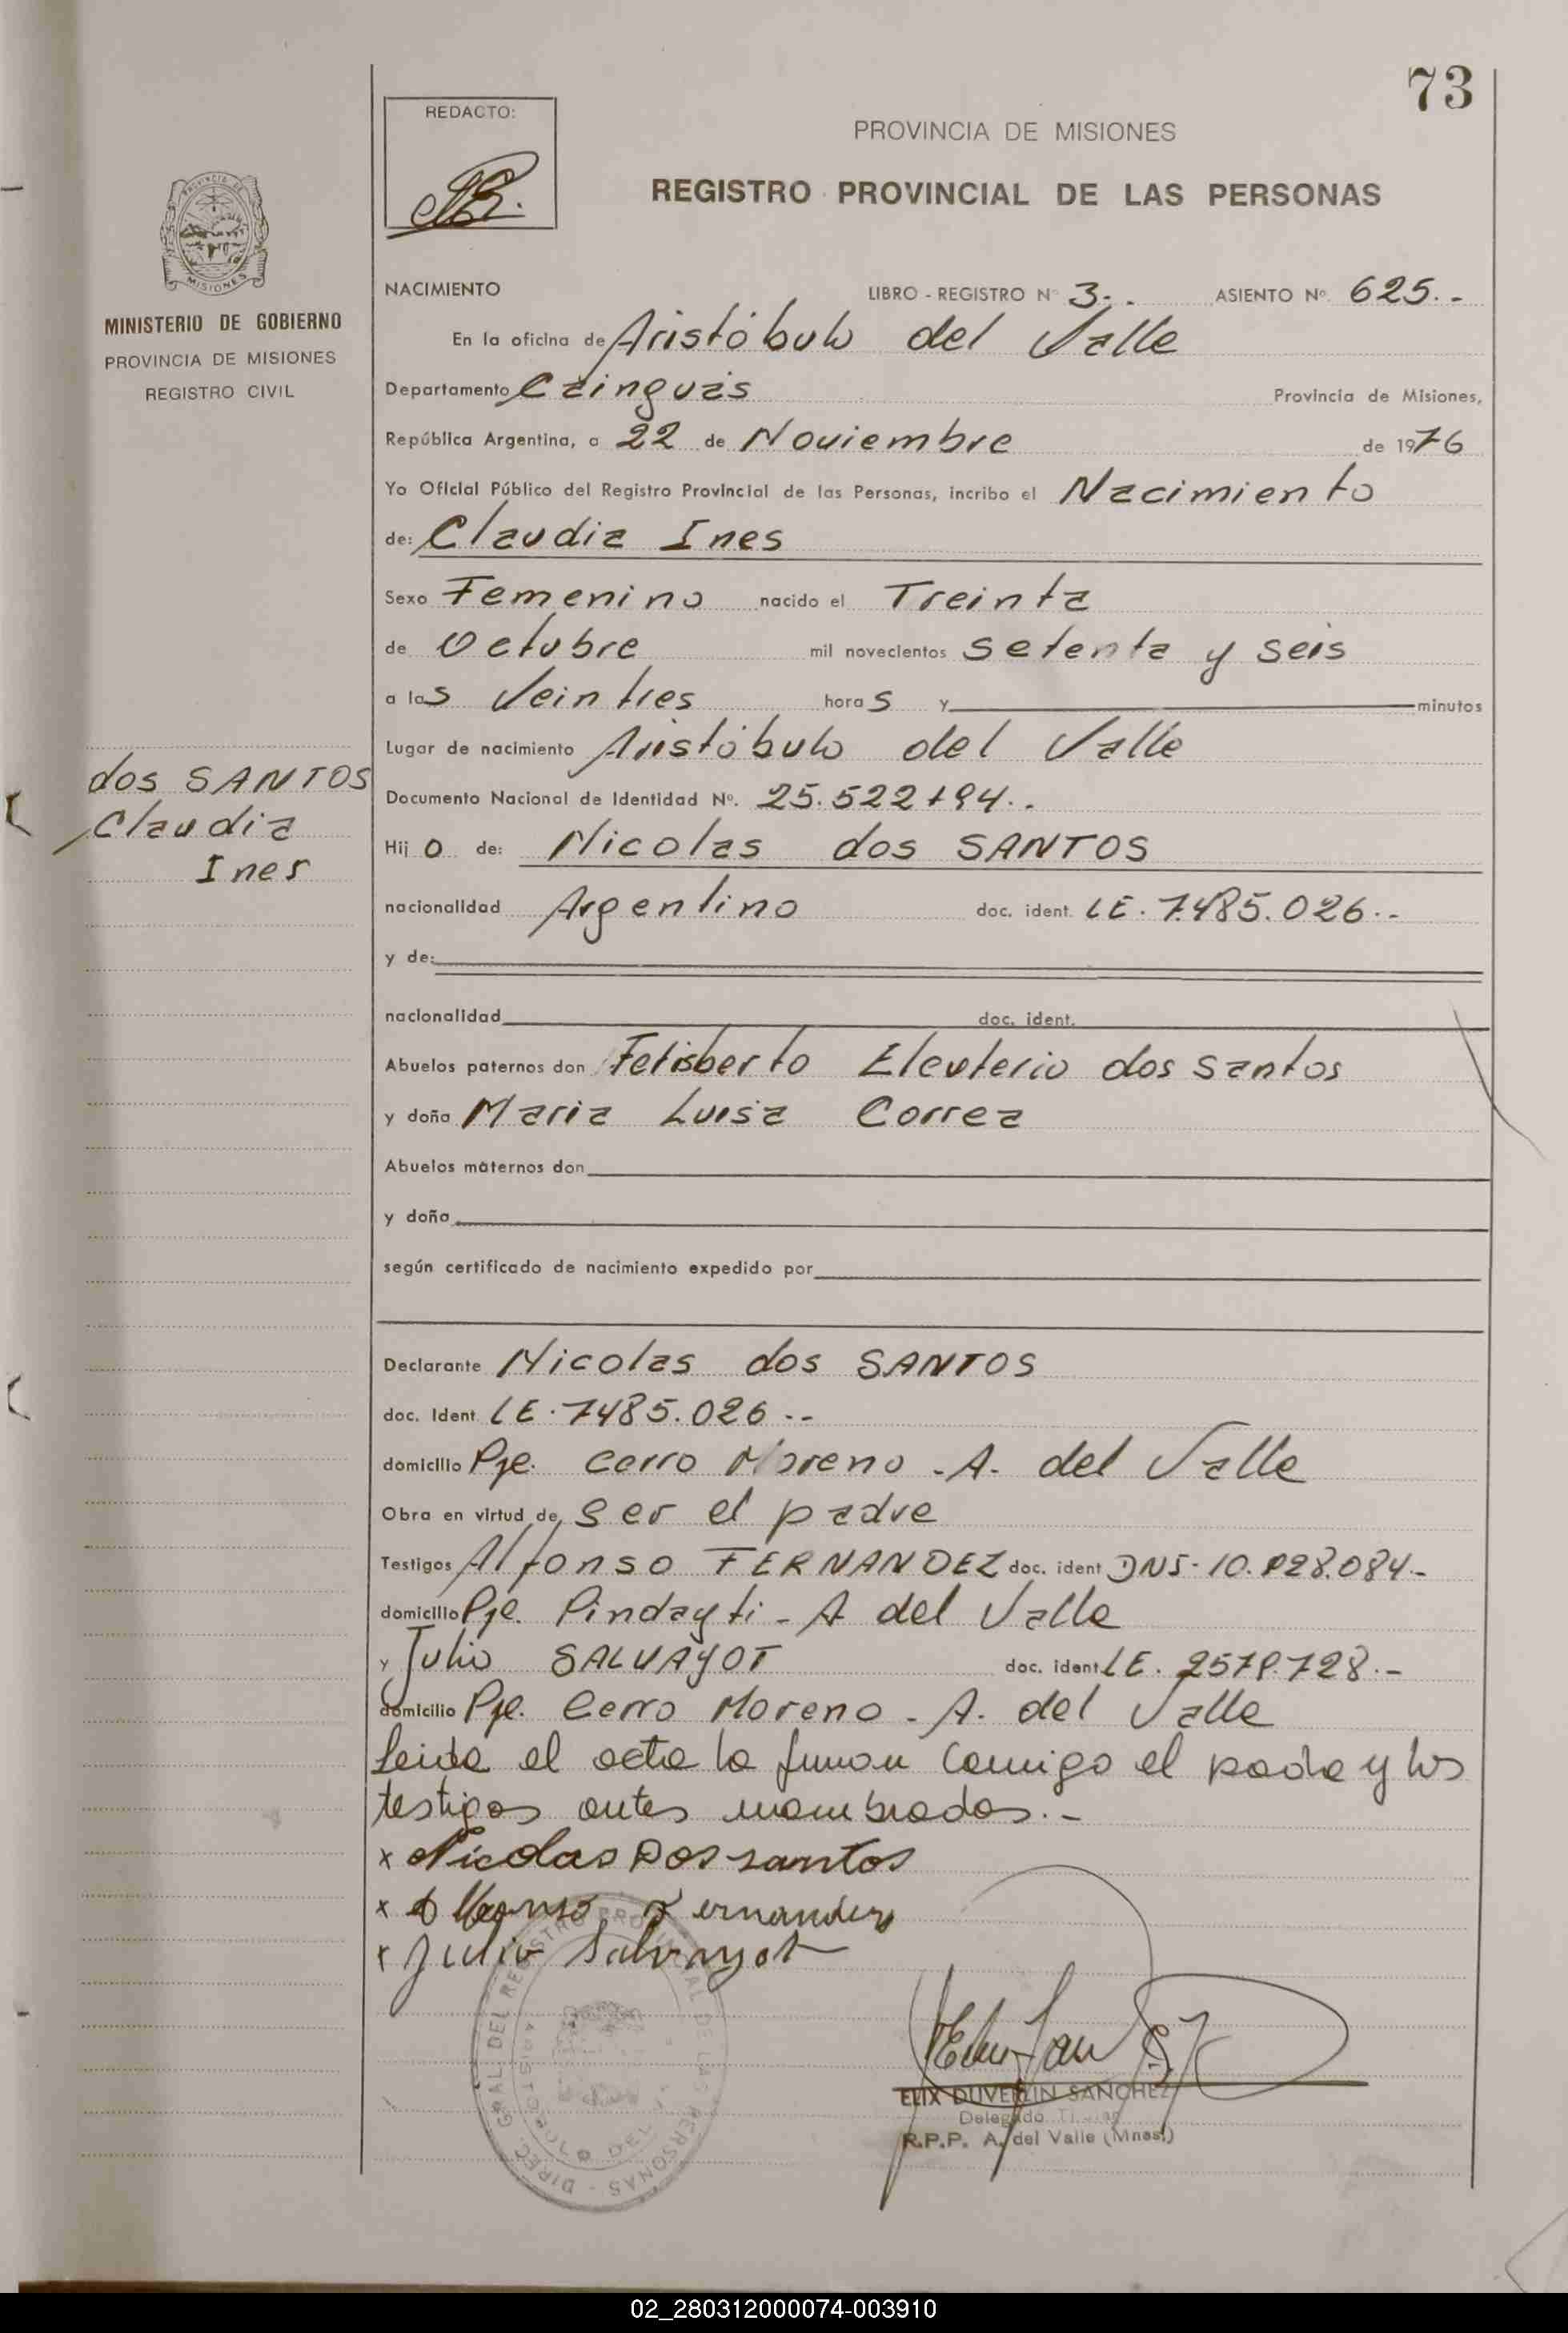 73
REDACTO:
PROVINCIA DE MISIONES
REGISTRO PROVINCIAL DE LAS PERSONAS
MISIONES
MINISTERIO DE GOBIERNO
PROVINCIA DE MISIONES
REGISTRO CIVIL
NACIMIENTO LIBRO - REGISTRO Nº 3.- ASIENTO Nº 625.-
En la oficina de Aristóbulo del Valle
Departamento Cainguás Provincia de Misiones,
República Argentina, a 22 de Noviembre de 1976
Yo Oficial Público del Registro Provincial de las Personas, incribo el Nacimiento
de: Claudia Ines
Sexo Femenino nacido el Treinta
de Octubre mil novecientos setenta y seis
a las Veintres horas y minutos
Lugar de nacimiento Aristóbulo del Valle
dos SANTOS
Claudia
Ines
Documento Nacional de Identidad Nº.
Hijo de: Nicolas dos SANTOS
nacionalidad Argentino doc. ident. LE. 7.485.026.-
y de:
nacionalidad doc. ident.
Abuelos paternos don Felisberto Eleuterio dos santos
y doña Maria Luisa Correa
Abuelos maternos don
y doña
según certificado de nacimiento expedido por
Declarante Nicolas dos SANTOS
doc. Ident LE. 7485.026.--
domicilio Pje. Cerro Moreno - A. del Valle
Obra en virtud de ser el padre
Testigos Alfonso FERNANDEZ doc. ident
domicilio Pje. Pindayti - A del Valle
y Julio SALVAYOT doc. ident LE.
domicilio Pje. Cerro Moreno - A. del Valle
Leida el acta la firman comigo el padre y los
testigos antes nombrados.-
x Nicolas Dos santos
x Alfonso Fernandez
x Julio Salvayot
DIREC. GRAL DEL REGISTRO PROVINCIAL DE LAS PERSONAS
SANCHEZ
Delegado
R.P.P. A. del Valle (Mnes.)
02_280312000074-003910